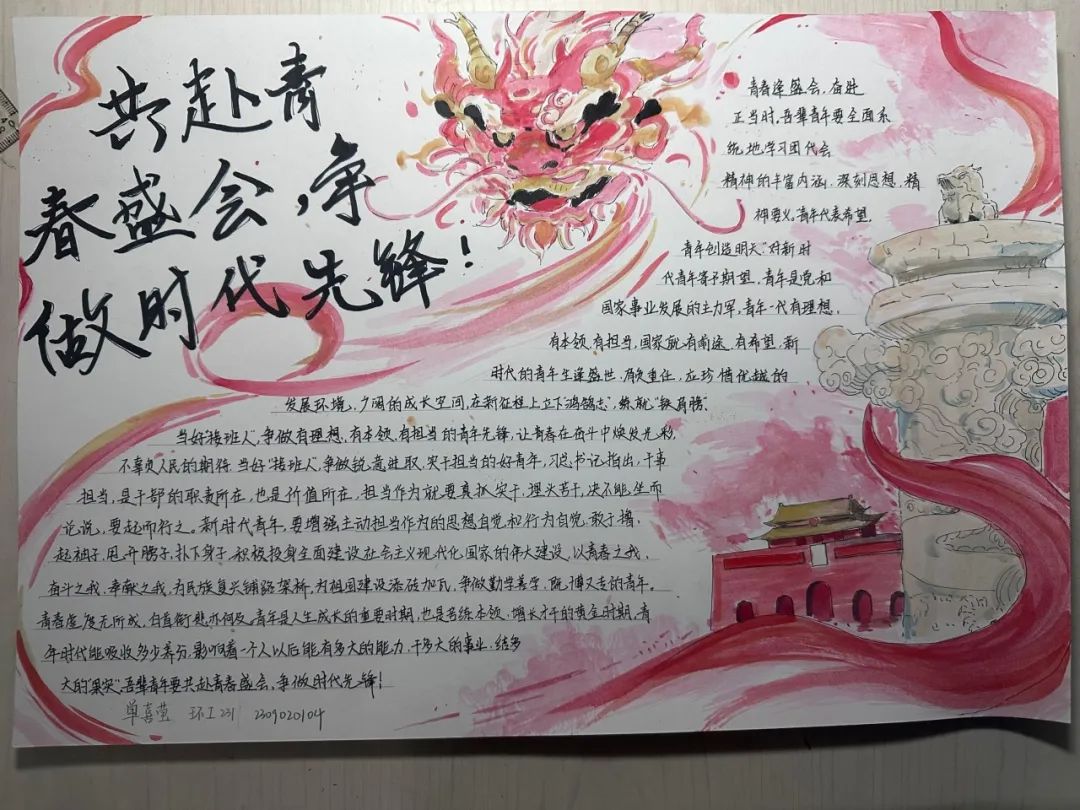 共赴青
春盛会,争
做时代先锋!
青春逢盛会,奋进
正当时,吾辈青年要全面系
统地学习团代会
精神的丰富内涵、深刻思想、精
神要义。"青年代表希望,
青年创造明天"对新时
代青年寄予期望,青年是党和
国家事业发展的主力军,青年一代有理想、
有本领、有担当,国家就有前途、有希望,新
时代的青年生逢盛世、肩负重任,应珍惜优越的
发展环境、广阔的成长空间,在新征程上立下"鸿鹄志"、练就"铁肩膀"、
当好"接班人",争做有理想、有本领、有担当的青年先锋,让青春在奋斗中焕发光彩,
不辜负人民的期待。当好"接班人",争做锐意进取、实干担当的好青年,习总书记指出,干事
担当,是干部的职责所在,也是价值所在,担当作为就要真抓实干、埋头苦干,决不能坐而
论说,要起而行之。新时代青年,要增强主动担当作为的思想自觉和行为自觉,敢于撸
起袖子,甩开膀子,扑下身子,积极投身全面建设社会主义现代化国家的伟大建设,以青春之我、
奋斗之我、奉献之我,为民族复兴铺路架桥,为祖国建设添砖加瓦,争做勤学善学、既博又专的青年。
青春虚度无所成,白首衔悲亦何及,青年是人生成长的重要时期,也是苦练本领、增长才干的黄金时期,青
年时代能吸收多少养分,影响着一个人以后能有多大的能力,干多大的事业,结多
大的"果实",吾辈青年要共赴青春盛会,争做时代先锋!
单喜莹 环工231 2309020104